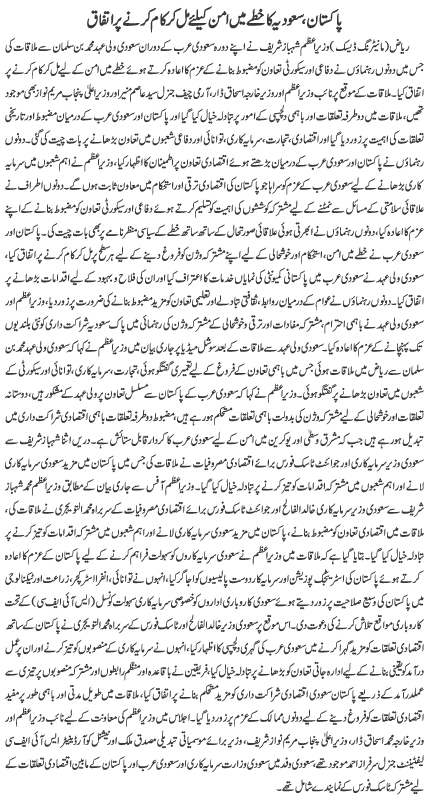 پاکستان، سعودیہ کا خطے میں امن کیلئے مل کر کام کرنے پر اتفاق
ریاض (مانیٹرنگ ڈیسک) وزیراعظم شہباز شریف نے اپنے دورہ سعودی عرب کے دوران سعودی ولی عہد محمد بن سلمان سے ملاقات کی
جس میں دونوں رہنماؤں نے دفاعی اور سیکورٹی تعاون کو مضبوط بنانے کے عزم کا اعادہ کرتے ہوئے خطے میں امن کے لیے مل کر کام کرنے پر
اتفاق کیا۔ ملاقات کے موقع پر نائب وزیراعظم اور وزیر خارجہ اسحاق ڈار، آرمی چیف جنرل سید عاصم منیر اور وزیراعلیٰ پنجاب مریم نواز بھی موجود
تھیں، ملاقات میں دوطرفہ تعلقات اور باہمی دلچسپی کے امور پر تبادلہ خیال کیا گیا اور پاکستان اور سعودی عرب کے درمیان مضبوط اور تاریخی
تعلقات کی اہمیت پر زور دیا گیا اور اقتصادی، تجارت، سرمایہ کاری، توانائی اور دفاعی شعبوں میں تعاون بڑھانے پر بات چیت کی گئی۔ دونوں
رہنماؤں نے پاکستان اور سعودی عرب کے درمیان بڑھتے ہوئے اقتصادی تعاون پر اطمینان کا اظہار کیا، وزیراعظم نے اہم شعبوں میں سرمایہ
کاری بڑھانے کے لیے سعودی عرب کے عزم کو سراہا جو پاکستان کی اقتصادی ترقی اور استحکام میں معاون ثابت ہوں گے۔ دونوں اطراف نے
علاقائی سلامتی کے مسائل سے نمٹنے کے لیے مشترکہ کوششوں کی اہمیت کو تسلیم کرتے ہوئے دفاعی اور سیکورٹی تعاون کو مضبوط بنانے کے اپنے
عزم کا اعادہ کیا، دونوں رہنماؤں نے ابھرتی ہوئی علاقائی صورتحال کے ساتھ ساتھ خطے کے سیاسی منظر نامے پر بھی بات چیت کی۔ پاکستان اور
سعودی عرب نے خطے میں امن، استحکام اور خوشحالی کے لیے اپنے مشترکہ وژن کو فروغ دینے کے لیے ہر سطح پر مل کر کام کرنے پر اتفاق کیا،
سعودی ولی عہد نے سعودی عرب میں پاکستانی کمیونٹی کی نمایاں خدمات کا اعتراف کیا اور ان کی فلاح و بہبود کے لیے اقدامات بڑھانے پر
اتفاق کیا۔ دونوں رہنماؤں نے عوام کے درمیان روابط، ثقافتی تبادلے اور تعلیمی تعاون کو مزید مضبوط بنانے کی ضرورت پر زور دیا، وزیراعظم اور
سعودی ولی عہد نے باہمی احترام، مشترکہ مفادات اور ترقی و خوشحالی کے مشترکہ وژن کی رہنمائی میں پاک سعودیہ شراکت داری کو نئی بلندیوں
تک پہنچانے کے عزم کا اعادہ کیا۔ سعودی ولی عہد سے ملاقات کے بعد سوشل میڈیا پر جاری بیان میں وزیراعظم نے کہا کہ سعودی ولی عہد محمد بن
سلمان سے ریاض میں ملاقات ہوئی جس میں باہمی تعاون کے فروغ کے لیے تعمیری گفتگو ہوئی، تجارت، سرمایہ کاری، توانائی اور سیکورٹی کے
شعبوں میں تعاون بڑھانے پر گفتگو ہوئی۔ وزیراعظم نے کہا کہ سعودی عرب کے پاکستان سے مسلسل تعاون پر ولی عہد کے مشکور ہیں، دوستانہ
تعلقات اور خوشحالی کے لیے مشترکہ وژن کی بدولت باہمی تعلقات مستحکم ہو رہے ہیں، مضبوط دوطرفہ تعلقات باہمی اقتصادی شراکت داری میں
تبدیل ہو رہے ہیں جب کہ مشرق وسطیٰ اور یوکرین میں امن کے لیے سعودی عرب کا کردار قابل ستائش ہے۔ دریں اثنا شہباز شریف سے
سعودی وزیر سرمایہ کاری اور جوائنٹ ٹاسک فورس برائے اقتصادی مصروفیات نے ملاقات کی جس میں پاکستان میں مزید سعودی سرمایہ کاری
لانے اور اہم شعبوں میں مشترکہ اقدامات کو تیز کرنے پر تبادلہ خیال کیا گیا۔ وزیراعظم آفس سے جاری بیان کے مطابق وزیراعظم محمد شہباز
شریف سے سعودی وزیر سرمایہ کاری خالد الفالح اور جوائنٹ ٹاسک فورس برائے اقتصادی مصروفیات کے سربراہ محمد التویجری نے ملاقات کی،
ملاقات میں اقتصادی تعاون کو مضبوط بنانے، پاکستان میں مزید سعودی سرمایہ کاری لانے اور اہم شعبوں میں مشترکہ اقدامات کو تیز کرنے پر
تبادلہ خیال کیا گیا۔ بتایا گیا ہے کہ ملاقات میں وزیراعظم نے سعودی سرمایہ کاروں کو سہولت فراہم کرنے کے لیے پاکستان کے عزم کا اعادہ
کرتے ہوئے پاکستان کی اسٹریٹیجک پوزیشن اور سرمایہ کار دوست پالیسیوں کو اجاگر کیا، انہوں نے توانائی، انفرا اسٹرکچر، زراعت اور ٹیکنالوجی میں
پاکستان کی وسیع صلاحیت پر زور دیتے ہوئے سعودی کاروباری اداروں کو خصوصی سرمایہ کاری سہولت کونسل (ایس آئی ایف سی) کے تحت
کاروباری مواقع تلاش کرنے کی دعوت دی۔ اس موقع پر سعودی وزیر خالد الفالح اور ٹاسک فورس کے سربراہ محمد التویجری نے پاکستان کے ساتھ
اقتصادی تعلقات کو مزید گہرا کرنے میں سعودی عرب کی گہری دلچسپی کا اظہار کیا، انہوں نے جاری منصوبوں کو تیز کرنے اور ان پر عمل
درآمد کو یقینی بنانے کے لیے ادارہ جاتی تعاون کو بڑھانے پر تبادلہ خیال کیا، فریقین نے باقاعدہ اور منظم رابطوں اور مشترکہ منصوبوں پر تیزی سے
عملدرآمد کے ذریعے پاکستان سعودی اقتصادی شراکت داری کو مزید مستحکم بنانے پر اتفاق کیا، ملاقات میں طویل مدتی اور باہمی طور پر مفید
اقتصادی تعلقات کو فروغ دینے کے لیے دونوں ممالک کے عزم پر زور دیا گیا۔ اجلاس میں وزیراعظم کی معاونت کے لیے نائب وزیراعظم اور
وزیر خارجہ محمد اسحاق ڈار، وزیراعلیٰ پنجاب مریم نواز شریف، وزیر برائے موسمیاتی تبدیلی مصدق ملک اور نیشنل کوآرڈینیٹر ایس آئی ایف سی
لیفٹیننٹ جنرل سرفراز احمد موجود تھے، سعودی وفد میں سعودی وزارت سرمایہ کاری اور سعودی عرب اور پاکستان کے مابین اقتصادی تعلقات کے لیے
مشترکہ ٹاسک فورس کے نمائندے شامل تھے۔